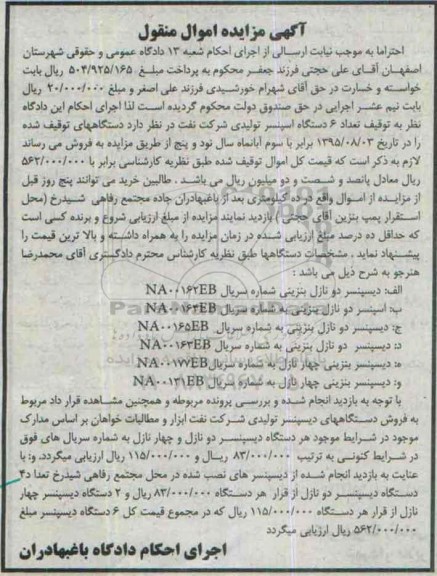 آگهی مزایده اموال منقول
احتراما به موجب نیابت ارسالی از اجرای احکام شعبه ۱۳ دادگاه عمومی و حقوقی شهرستان
اصفهان آقای علی حجتی فرزند جعفر محکوم به پرداخت مبلغ ۵۰۴/۹۲۵/۱۶۵ ریال بابت
خواسته و خسارت در حق آقای شهرام خورشیدی فرزند علی اصغر و مبلغ ۲۰/۰۰۰/۰۰۰ ریال
بابت نیم عشر اجرایی در حق صندوق دولت محکوم گردیده است لذا اجرای احکام این دادگاه
نظر به توقیف تعداد ۶ دستگاه اسپنسر تولیدی شرکت نفت در نظر دارد دستگاههای توقیف شده
را در تاریخ ۱۳۹۵/۰۸/۰۳ برابر با سوم آبانماه سال نود و پنج از طریق مزایده به فروش می رساند
لازم به ذکر است که قیمت کل اموال توقیف شده طبق نظریه کارشناسی برابر با ۵۶۲/۰۰۰/۰۰۰
ریال معادل پانصد و شصت و دو میلیون ریال می باشد . طالبین خرید می توانند پنج روز قبل
از مزایده از اموال واقع در ده کیلومتری بعد از باغبهادران جاده مجتمع رفاهی شیدرخ (محل
استقرار پمپ بنزین آقای حجتی) بازدید نمایند مزایده از مبلغ ارزیابی شروع و برنده کسی است
که حداقل ده درصد مبلغ ارزیابی شده در زمان مزایده را به همراه داشته و بالا ترین قیمت را
پیشنهاد نماید . مشخصات دستگاهها طبق نظریه کارشناس محترم دادگستری آقای محمدرضا
هنرجو به شرح ذیل می باشد :
الف: دیسپنسر دو نازل بنزینی شماره سریال NA۰۰۱۶۲EB
ب: اسپنسر دو نازل بنزینی به شماره سریال NA۰۰۱۶۴EB
ج: دیسپنسر دو نازل بنزینی به شماره سریال NA۰۰۱۶۵EB
د: دیسپنسر دو نازل بنزینی به شماره سریال NA۰۰۱۶۳EB
ه: دیسپنسر بنزینی چهار نازل به شماره سریال NA۰۰۱۷۷EB
و: دیسپنسر بنزینی چهار نازل به شماره سریال NA۰۰۱۳۱EB
با توجه به بازدید انجام شده و بررسی پرونده مربوطه و همچنین مشاهده قرار داد مربوط
به فروش دستگاههای دیسپنسر تولیدی شرکت نفت ابزار و مطالبات خواهان بر اساس مدارک
موجود در شرایط موجود هر دستگاه دیسپنسر دو نازل و چهار نازل به شماره سریال های فوق
در شرایط کنونی به ترتیب ۸۳/۰۰۰/۰۰۰ ریال و ۱۱۵/۰۰۰/۰۰۰ ریال ارزیابی میگردد. و: با
عنایت به بازدید انجام شده از دیسپنسر های نصب شده در محل مجتمع رفاهی شیدرخ تعداد ۴
دستگاه دیسپنسر دو نازل از قرار هر دستگاه ۸۳/۰۰۰/۰۰۰ ریال و ۲ دستگاه دیسپنسر چهار
نازل از قرار هر دستگاه ۱۱۵/۰۰۰/۰۰۰ ریال که در مجموع قیمت کل ۶ دستگاه دیسپنسر مبلغ
۵۶۲/۰۰۰/۰۰۰ ریال ارزیابی میگردد
اجرای احکام دادگاه باغبهادران